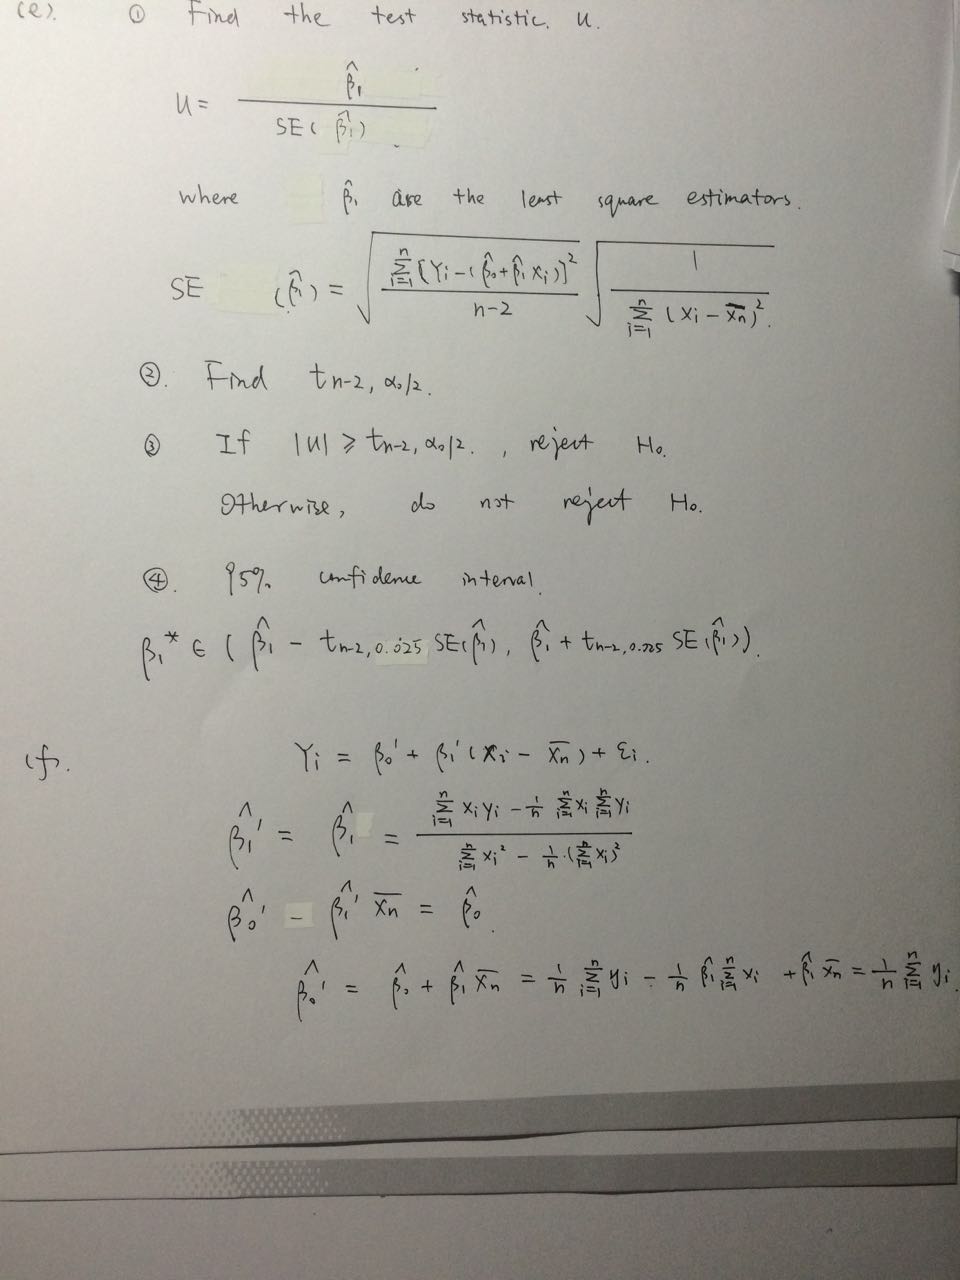 (e). ① Find the test statistic. u.
u = β̂₁ / SE(β̂₁)
where β̂₁ are the least square estimators.
SE (β̂₁) = √( Σᵢ₌₁ⁿ [Yi - (β̂₀ + β̂₁ xi)]² / n-2 ) √( 1 / Σᵢ₌₁ⁿ (xi - x̄n)² ).
②. Find tn-2, α₀/2.
③ If |u| ≥ tn-2, α₀/2. , reject H₀.
Otherwise, do not reject H₀.
④. 95% confidence interval.
β₁* ∈ ( β̂₁ - tn-2, 0.025 SE(β̂₁), β̂₁ + tn-2, 0.025 SE(β̂₁)).
(f). Yi = β₀' + β₁' (xi - x̄n) + εi.
β̂₁' = β̂₁ = ( Σᵢ₌₁ⁿ xi yi - 1/n Σᵢ₌₁ⁿ xi Σᵢ₌₁ⁿ yi ) / ( Σᵢ₌₁ⁿ xi² - 1/n · (Σᵢ₌₁ⁿ xi)² )
β̂₀' - β̂₁' x̄n = β̂₀.
β̂₀' = β̂₀ + β̂₁ x̄n = 1/n Σᵢ₌₁ⁿ yi - 1/n β̂₁ Σᵢ₌₁ⁿ xi + β̂₁ x̄n = 1/n Σᵢ₌₁ⁿ yi.